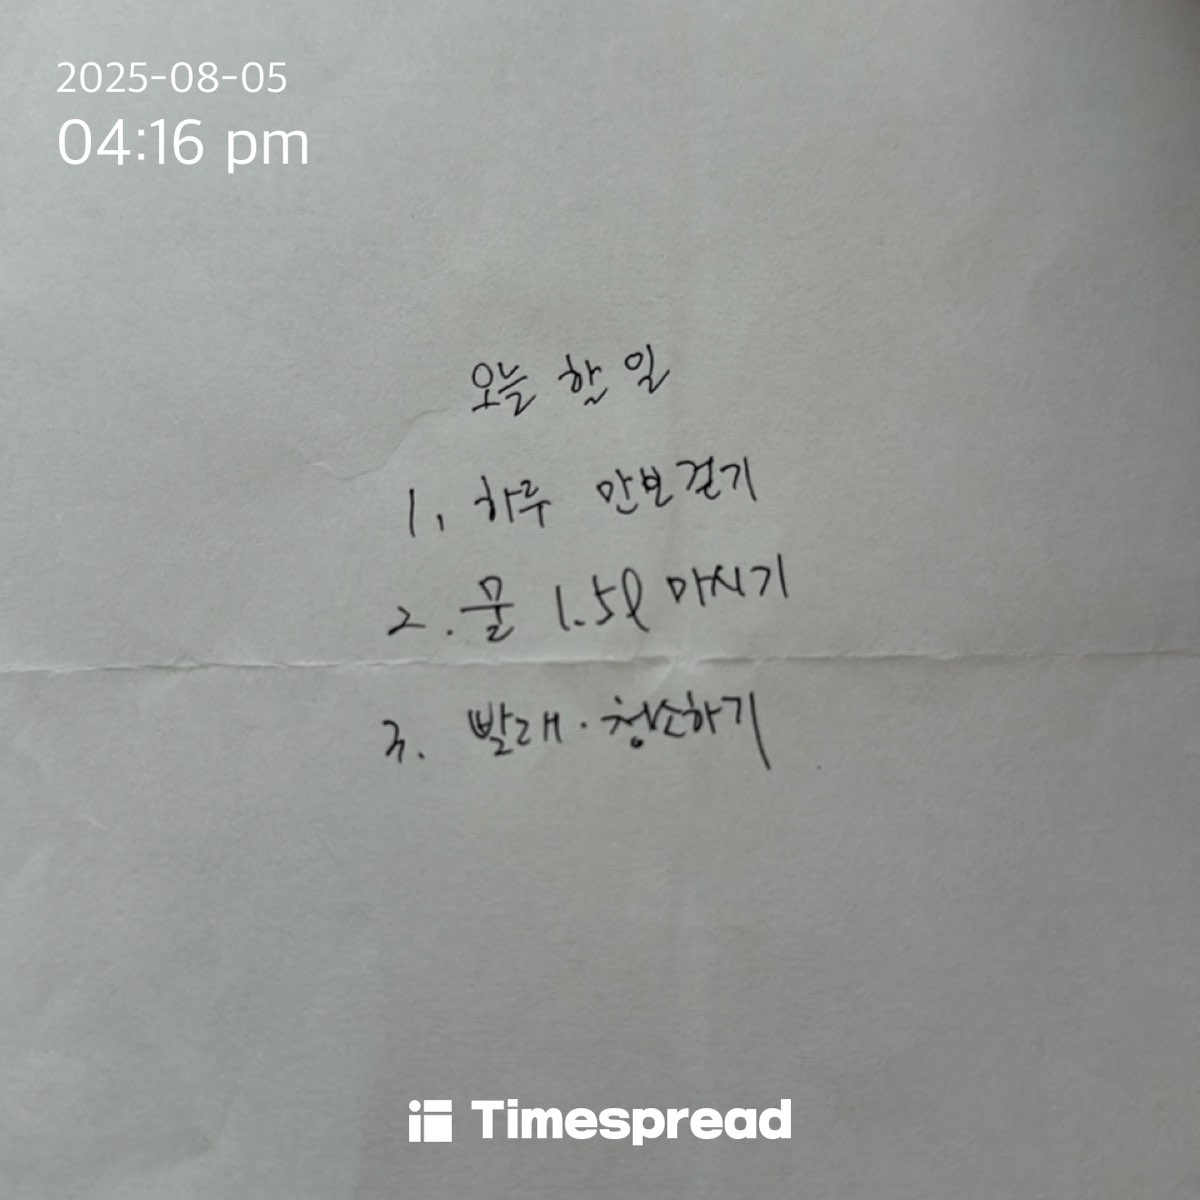 2025-08-05
04:16 pm
오늘 한 일
1. 하루 만보걷기
2. 물 1.5l 마시기
3. 빨래·청소하기
Timespread